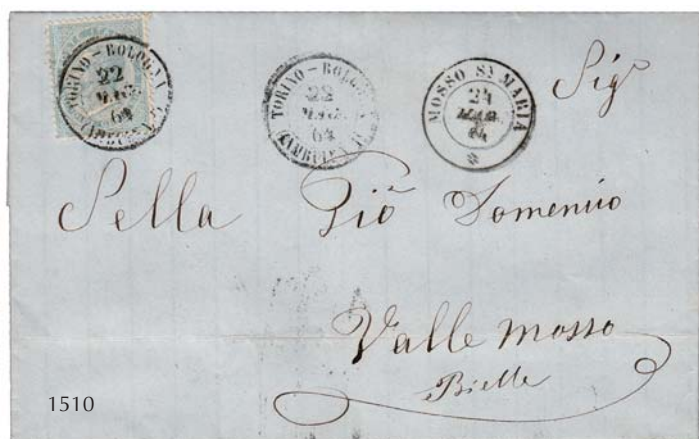 TORINO - BOLOGNA
22
MAG
64
(AMBULANTE)
TORINO - BOLOGNA
22
MAG
64
(AMBULANTE)
MOSSO Sta MARIA
24
MAG
64
Sigr
Sella Giõ Domenico
Valle Mosso
Biella
1510